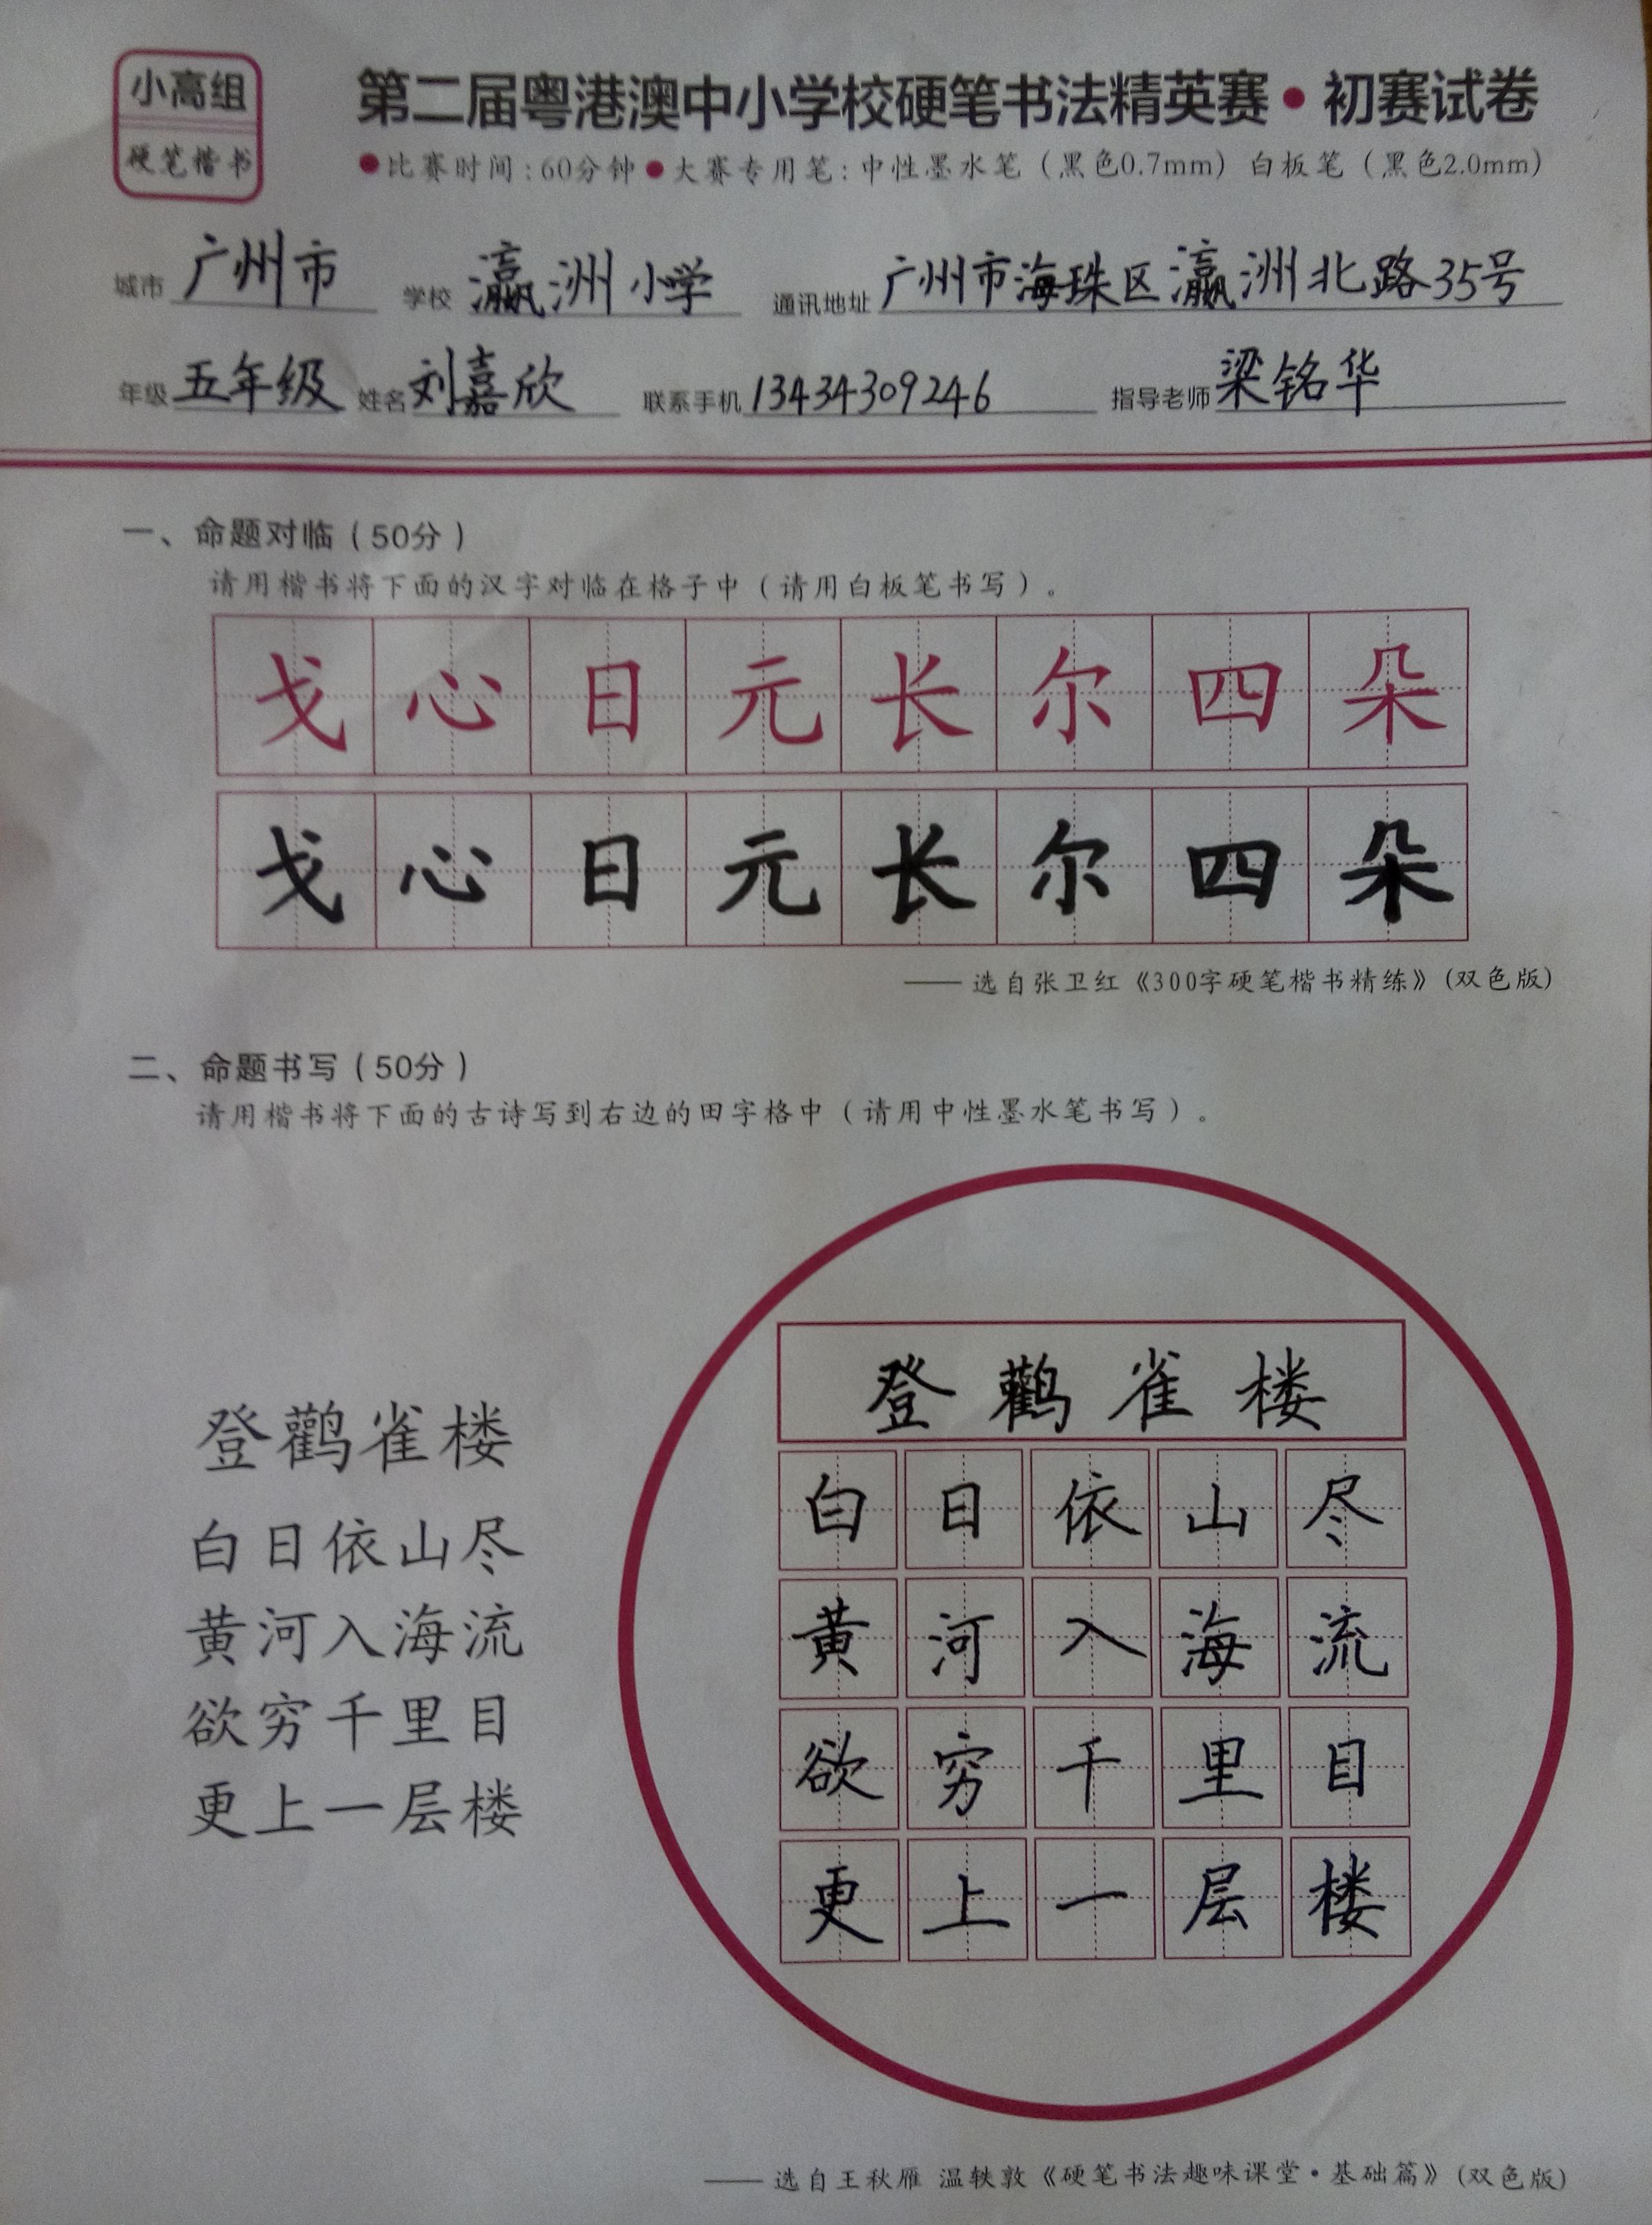 小高组
硬笔楷书
第二届粤港澳中小学校硬笔书法精英赛·初赛试卷
●比赛时间:60分钟●大赛专用笔:中性墨水笔（黑色0.7mm）白板笔（黑色2.0mm）
城市 广州市 学校 瀛洲小学 通讯地址 广州市海珠区瀛洲北路35号
年级 五年级 姓名 刘嘉欣 联系手机 13434309246 指导老师 梁铭华
一、命题对临（50分）
请用楷书将下面的汉字对临在格子中（请用白板笔书写）。
戈心日元长尔四朵
戈心日元长尔四朵
——选自张卫红《300字硬笔楷书精练》(双色版)
二、命题书写（50分）
请用楷书将下面的古诗写到右边的田字格中（请用中性墨水笔书写）。
登鹳雀楼
白日依山尽
黄河入海流
欲穷千里目
更上一层楼
登鹳雀楼
白日依山尽
黄河入海流
欲穷千里目
更上一层楼
——选自王秋雁 温轶敦《硬笔书法趣味课堂·基础篇》(双色版)